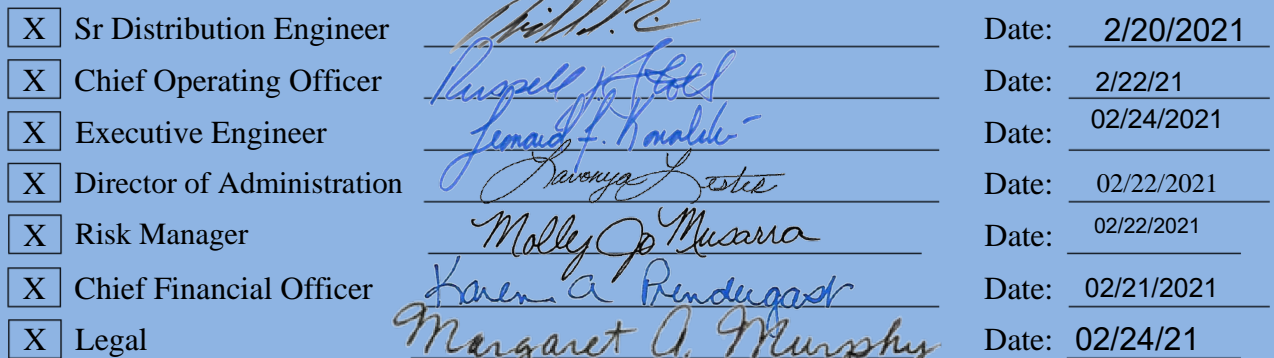 X Sr Distribution Engineer Date: 2/20/2021
X Chief Operating Officer Russell Date: 2/22/21
X Executive Engineer Leonard F. Date: 02/24/2021
X Director of Administration Lavonya Lester Date: 02/22/2021
X Risk Manager Molly Jo Musarra Date: 02/22/2021
X Chief Financial Officer Karen A Prendergast Date: 02/21/2021
X Legal Margaret A. Murphy Date: 02/24/21